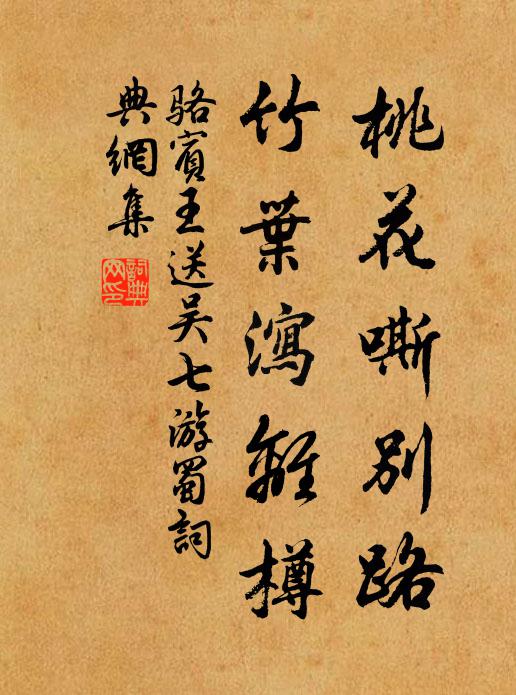 桃花嘶别路
竹葉瀉離樽
駱賓王送吴七游蜀詞
典網集
詞典網印